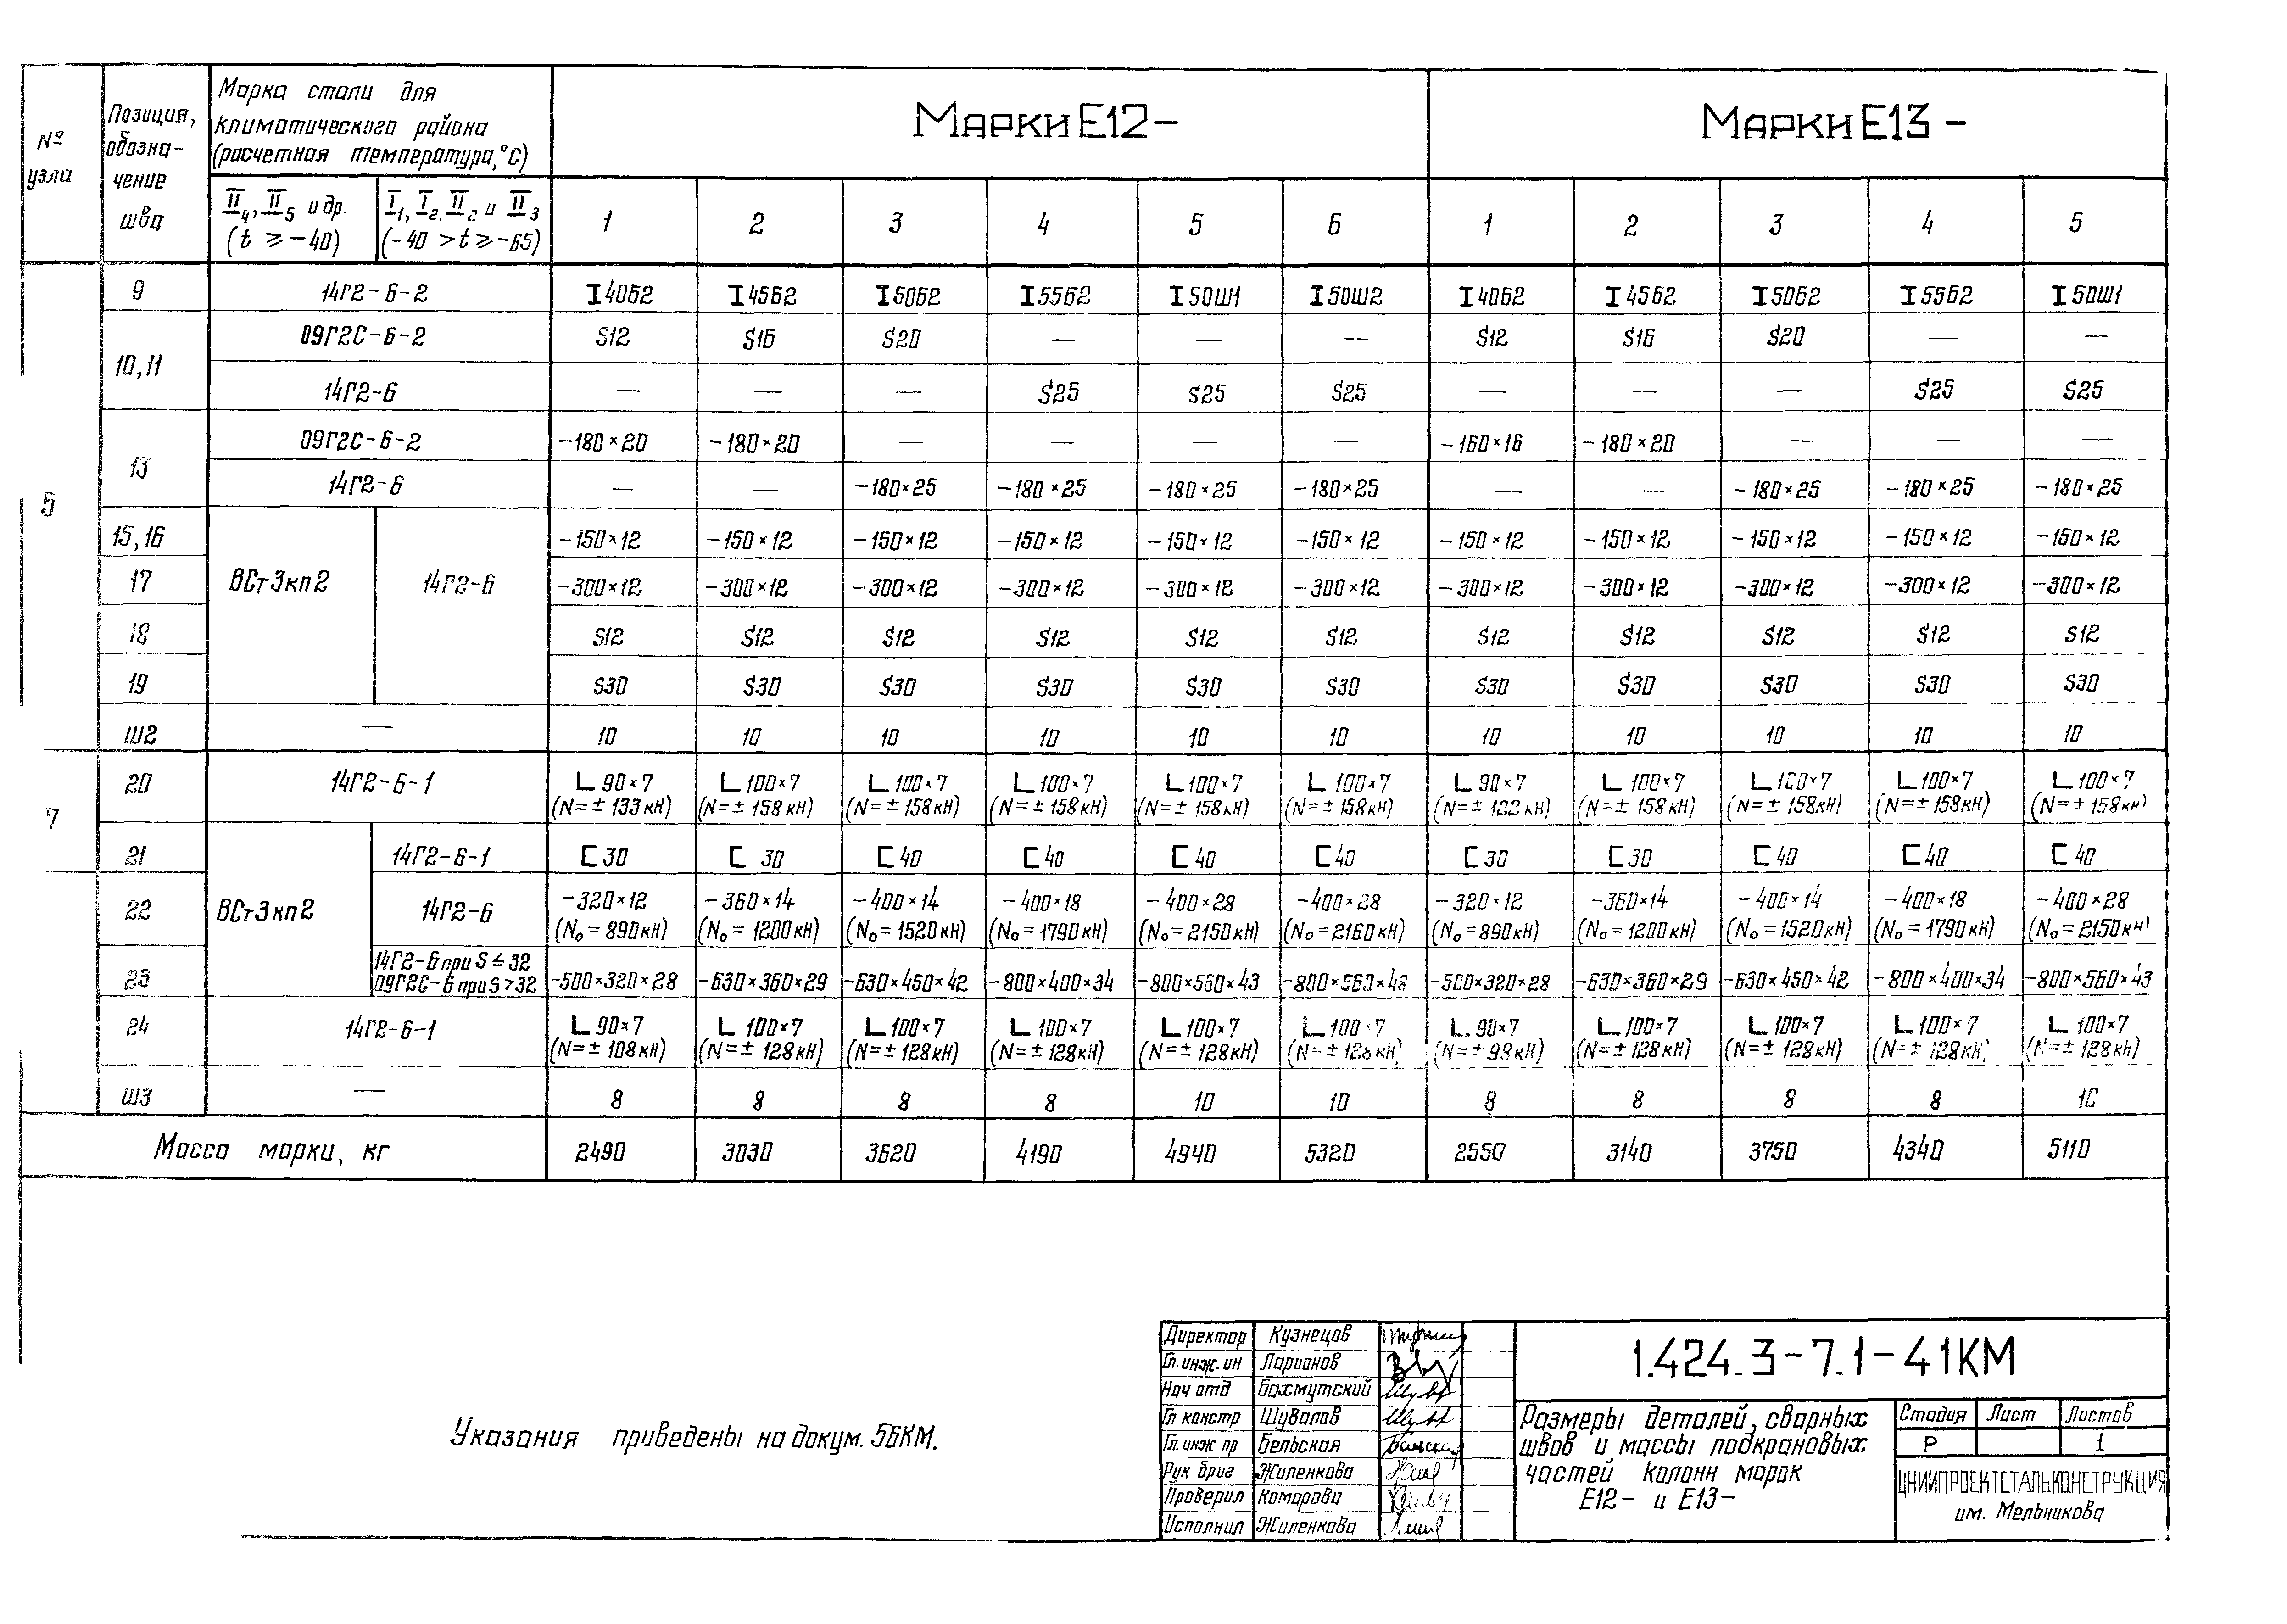 № узла
Позиция, обозначение шва
Марка стали для климатического района (расчетная температура, °С)
Марки Е12-
Марки Е13-
II4, II5 и др. (t ≥ -40)
I1, I2, II2 и II3 (-40 > t ≥ -65)
1 2 3 4 5 6 1 2 3 4 5
5
9 14Г2-6-2 I40Б2 I45Б2 I50Б2 I55Б2 I50Ш1 I50Ш2 I40Б2 I45Б2 I50Б2 I55Б2 I50Ш1
10,11 09Г2С-6-2 S12 S16 S20 — — — S12 S16 S20 — —
14Г2-6 — — — S25 S25 S25 — — — S25 S25
13 09Г2С-6-2 -180×20 -180×20 — — — — -160×16 -180×20 — — —
14Г2-6 — — -180×25 -180×25 -180×25 -180×25 — — -180×25 -180×25 -180×25
15,16 -150×12 -150×12 -150×12 -150×12 -150×12 -150×12 -150×12 -150×12 -150×12 -150×12 -150×12
17 ВСт3кп2 14Г2-6 -300×12 -300×12 -300×12 -300×12 -300×12 -300×12 -300×12 -300×12 -300×12 -300×12 -300×12
18 S12 S12 S12 S12 S12 S12 S12 S12 S12 S12 S12
19 S30 S30 S30 S30 S30 S30 S30 S30 S30 S30 S30
Ш2 — 10 10 10 10 10 10 10 10 10 10 10
7
20 14Г2-6-1 L 90×7 L 100×7 L 100×7 L 100×7 L 100×7 L 100×7 L 90×7 L 100×7 L 100×7 L 100×7 L 100×7
(N=± 133кН) (N=± 158кН) (N=± 158кН) (N=± 158кН) (N=± 158кН) (N=± 158кН) (N=± кН) (N=± 158кН) (N=± 158кН) (N=± 158кН) (N=± 158кН)
21 14Г2-6-1 [ 30 [ 30 [ 40 [ 40 [ 40 [ 40 [ 30 [ 30 [ 40 [ 40 [ 40
22 ВСт3кп2 14Г2-6 -320×12 -360×14 -400×14 -400×18 -400×28 -400×28 -320×12 -360×14 -400×14 -400×18 -400×28
(No= 890кН) (No= 1200кН) (No= 1520кН) (No= 1790кН) (No= 2150кН) (No= 2160кН) (No= 890кН) (No= 1200кН) (No= 1520кН) (No= 1790кН) (No= 2150кН)
23 14Г2-6 при S ≤ 32
09Г2С-6 при S > 32 -500×320×28 -630×360×29 -630×450×42 -800×400×34 -800×560×43 -800×560×43 -500×320×28 -630×360×29 -630×450×42 -800×400×34 -800×560×43
24 14Г2-6-1 L 90×7 L 100×7 L 100×7 L 100×7 L 100×7 L 100×7 L 90×7 L 100×7 L 100×7 L 100×7 L 100×7
(N=± 108кН) (N=± 128кН) (N=± 128кН) (N=± 128кН) (N=± 128кН) (N=± 128кН) (N=± 98кН) (N=± 128кН) (N=± 128кН) (N=± 128кН) (N=± 128кН)
Ш3 — 8 8 8 8 10 10 8 8 8 8 10
Масса марки, кг 2490 3030 3620 4190 4940 5320 2550 3140 3750 4340 5110
Указания приведены на докум. 56КМ.
Директор Кузнецов
Гл. инж. ин Ларионов
Нач отд Бахмутский
Гл констр Шувалов
Гл. инж пр Бельская
Рук бриг Жиленкова
Проверил Комарова
Исполнил Жиленкова
1.424.3-7.1-41КМ
Размеры деталей, сварных
швов и массы подкрановых
частей колонн марок
Е12- и Е13-
Стадия Лист Листов
Р 1
ЦНИИПРОЕКТСТАЛЬКОНСТРУКЦИЯ
им. Мельникова